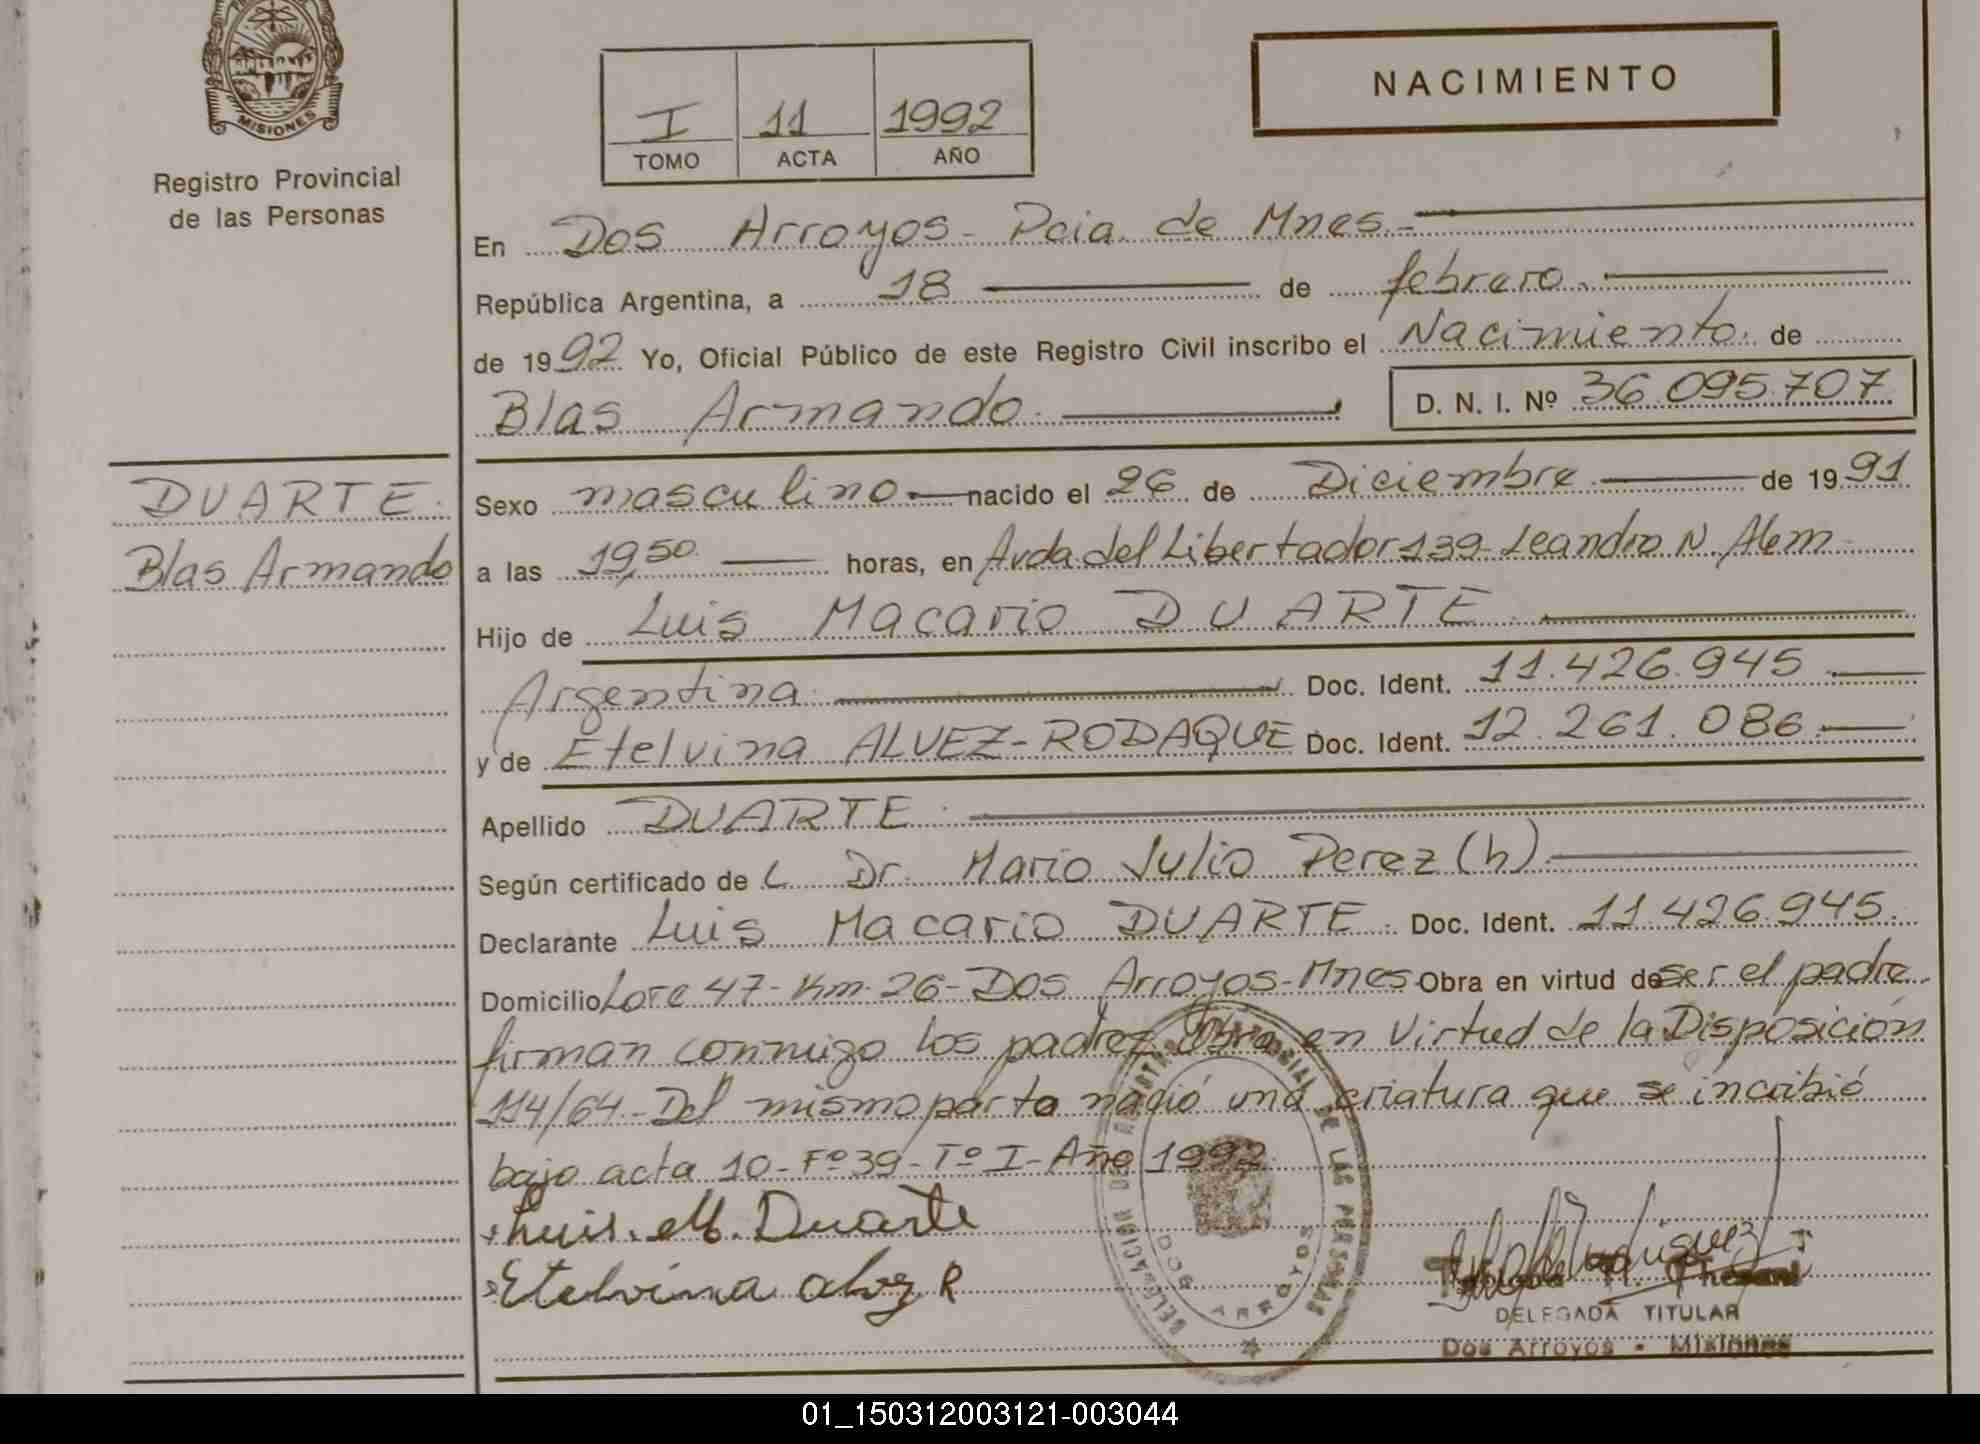 MISIONES
Registro Provincial
de las Personas
I 11 1992
TOMO ACTA AÑO
NACIMIENTO
En Dos Arroyos - Pcia. de Mnes.
República Argentina, a 18 de febrero.
de 1992 Yo, Oficial Público de este Registro Civil inscribo el Nacimiento. de
Blas Armando. D. N. I. Nº 36.095.707
DUARTE.
Blas Armando
Sexo masculino nacido el 26 de Diciembre de 1991
a las 19,50 horas, en Avda. del Libertador 139 - Leandro N. Alem
Hijo de Luis Macario DUARTE.
Argentina. Doc. Ident. 11.426.945
y de Etelvina ALVEZ-RODAQUE Doc. Ident. 12.261.086
Apellido DUARTE.
Según certificado de L Dr. Mario Julio Perez (h).
Declarante Luis Macario DUARTE. Doc. Ident. 11.426.945.
Domicilio Lote 47 - Km. 26 - Dos Arroyos - Mnes. Obra en virtud de ser el padre.
firman conmigo los padres Obra en virtud de la Disposición
114/64 - Del mismo parto nació una criatura que se incribió
bajo acta 10 - Fº 39 - Tº I - Año 1992.
Luis. M. Duarte
Etelvina alvez R
DELEGACION REGISTRO PROVINCIAL DE LAS PERSONAS
DOS ARROYOS
DELEGADA TITULAR
Dos Arroyos - Misiones
01_150312003121-003044